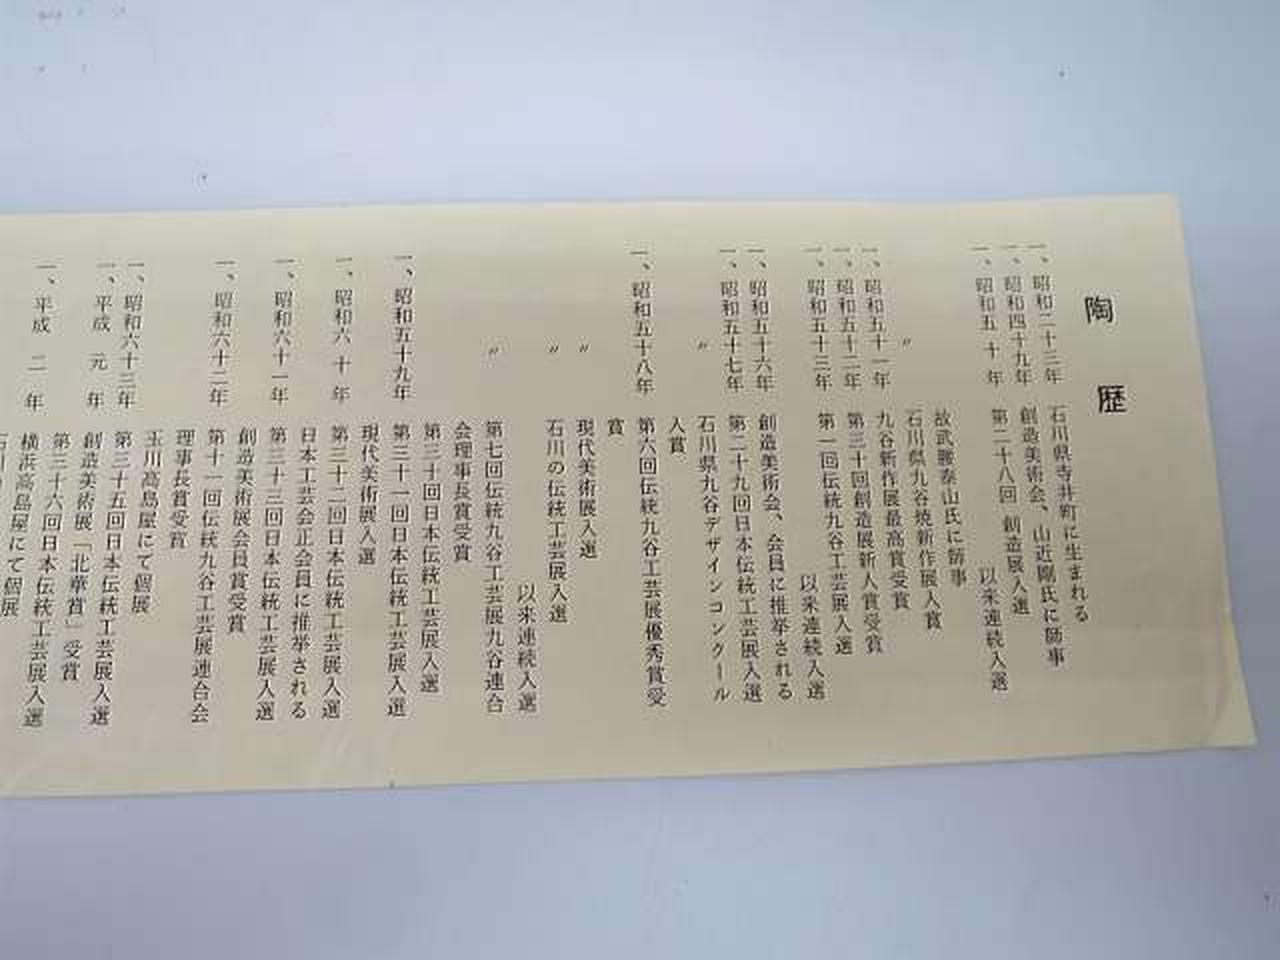 陶 歴
一、昭和二十三年 石川県寺井町に生まれる
一、昭和四十九年 創造美術会、山近剛氏に師事
一、昭和五十年 第二十八回 創造展入選
以来連続入選
故武腰泰山氏に師事
〃 石川県九谷焼新作展入賞
一、昭和五十一年 九谷新作展最高賞受賞
一、昭和五十二年 第三十回創造展新人賞受賞
一、昭和五十三年 第一回伝統九谷工芸展入選
以来連続入選
一、昭和五十六年 創造美術会、会員に推挙される
一、昭和五十七年 第二十九回日本伝統工芸展入選
〃 石川県九谷デザインコンクール
入賞
一、昭和五十八年 第六回伝統九谷工芸展優秀賞受
賞
〃 現代美術展入選
〃 石川の伝統工芸展入選
以来連続入選
〃 第七回伝統九谷工芸展九谷連合
会理事長賞受賞
第三十回日本伝統工芸展入選
一、昭和五十九年 第三十一回日本伝統工芸展入選
現代美術展入選
一、昭和六十年 第三十二回日本伝統工芸展入選
日本工芸会正会員に推挙される
一、昭和六十一年 第三十三回日本伝統工芸展入選
創造美術展会員賞受賞
一、昭和六十二年 第十一回伝統九谷工芸展連合会
理事長賞受賞
玉川高島屋にて個展
一、昭和六十三年 第三十五回日本伝統工芸展入選
一、平成元年 創造美術展「北華賞」受賞
第三十六回日本伝統工芸展入選
一、平成二年 横浜高島屋にて個展